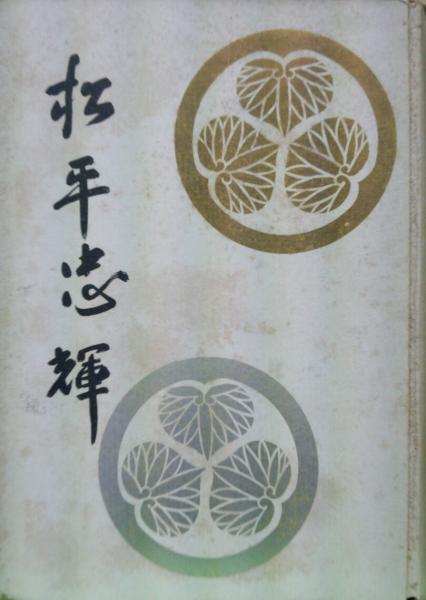 松平忠輝